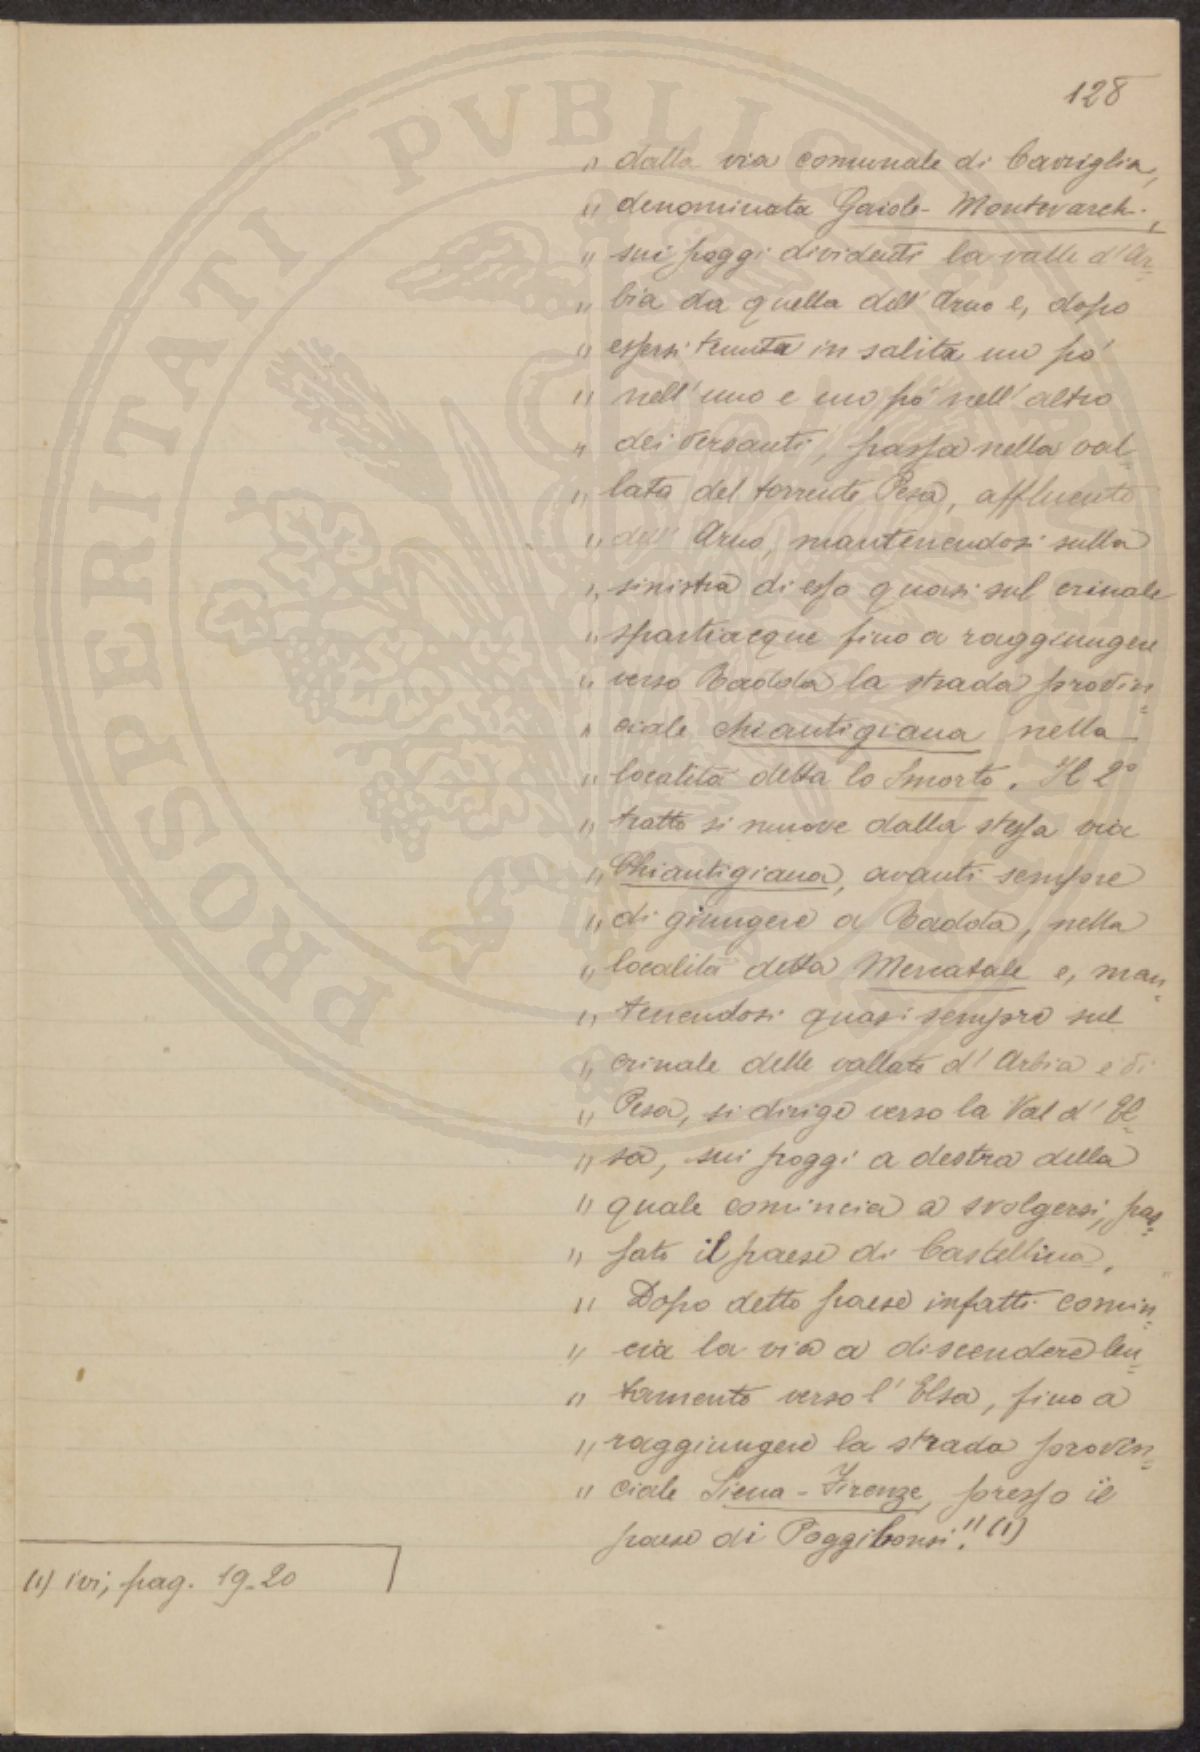 128
" dalla via comunale di Cavriglia,
" denominata Gaiole - Montevarchi,
" sui poggi dividenti la valle d'Ar=
" bia da quella dell'Arno e, dopo
" essersi tenuta in salita un pó
" nell'uno e un pó nell'altro
" dei versanti, passa nella val
" lata del torrente Pesa, affluente
" dell'Arno, mantenendosi sulla
" sinistra di esso quasi sul crinale
" spartiacque fino a raggiungere
" verso Radda la strada provin=
" ciale chiantigiana nella
" località detta lo Smorto. Il 2°
" tratto si muove dalla stessa via
" Chiantigiana, avanti sempre
" di giungere a Radda, nella
" località detta Mercatale e, man=
" tenendosi quasi sempre sul
" crinale delle vallate d'Arbia e di
" Pesa, si dirige verso la Val d'El=
" sa, sui poggi a destra della
" quale comincia a svolgersi, pas=
" sato il paese di Castellina.
" Dopo detto paese infatti comin=
" cia la via a discendere len=
" tamente verso l'Elsa, fino a
" raggiungere la strada provin=
" ciale Siena - Firenze, presso il
paese di Poggibonsi." (1)
(1) ivi, pag. 19-20
PROSPERITATI PVBLICAE